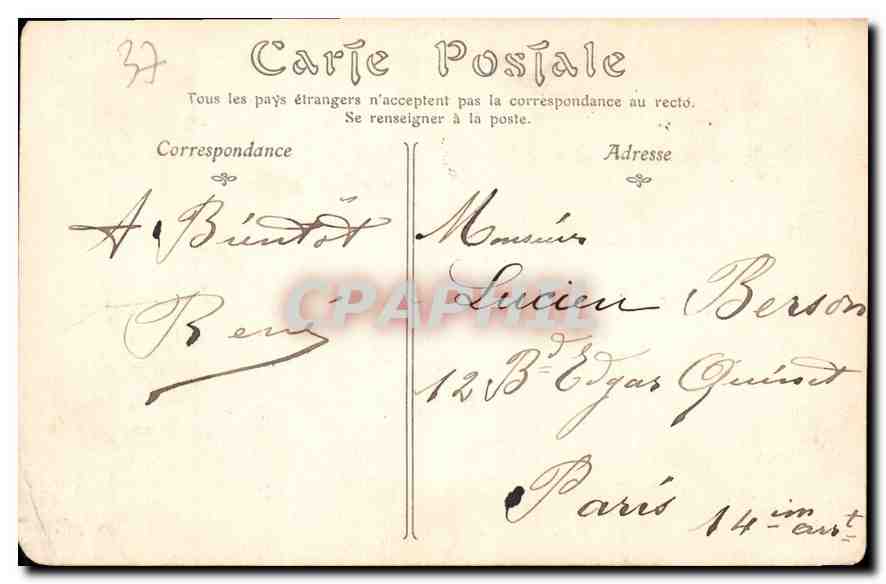 37
Carte Postale
Tous les pays étrangers n'acceptent pas la correspondance au recto.
Se renseigner à la poste.
Correspondance
A Bientôt
René
Adresse
Monsieur
Lucien Berson
12 Bd Edgar Quinet
Paris 14 im arrt
CPAPHIL